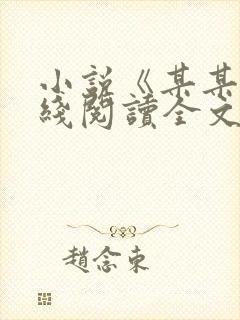 小說《某某
綫閱讀全文
趙念東